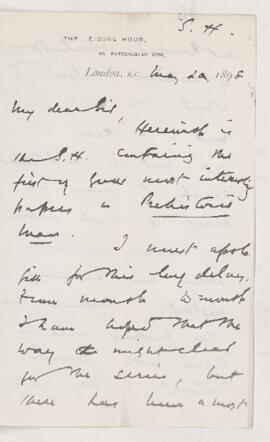 S. H.
THE LEISURE HOUR,
56, PATERNOSTER ROW,
London, E.C. May 20 1895
My dear Sir,
Herewith is
the S.H. containing the
first of your most interesting
papers on Prehistoric
Man.
I must apolo-
gise for this long delay.
From month to month
I have hoped that the
way might clear
for the series, but
there has been a most